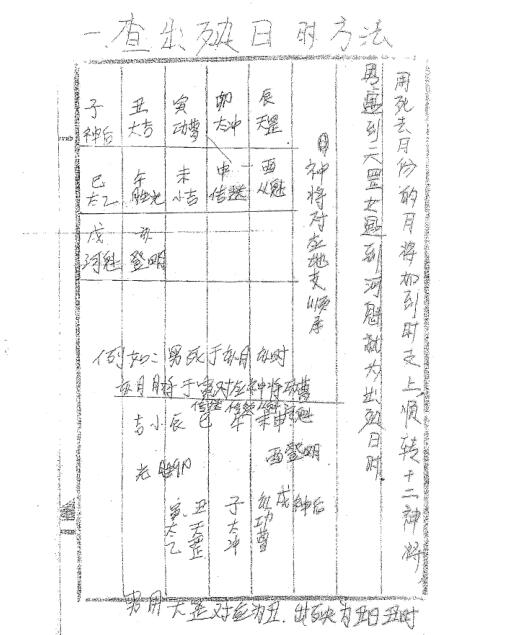 一.查出殃日时方法
用死去月份的月将加到时支上顺转十二神将
男遇到天罡女遇到河魁就为出殃日时
神将对应地支顺序
子 丑 寅 卯 辰
神后 大吉 功曹 太冲 天罡
巳 午 未 申 酉
太乙 胜光 小吉 传送 从魁
戌 亥
河魁 登明
例如：男死于亥月亥时
亥月月将于寅对应神将功曹
吉小辰 巳 午 未申河魁
酉登明
光胜卯
寅太乙 丑天罡 子太冲 亥功曹 戌 神后
男用天罡对应为丑.出殃为丑日丑时